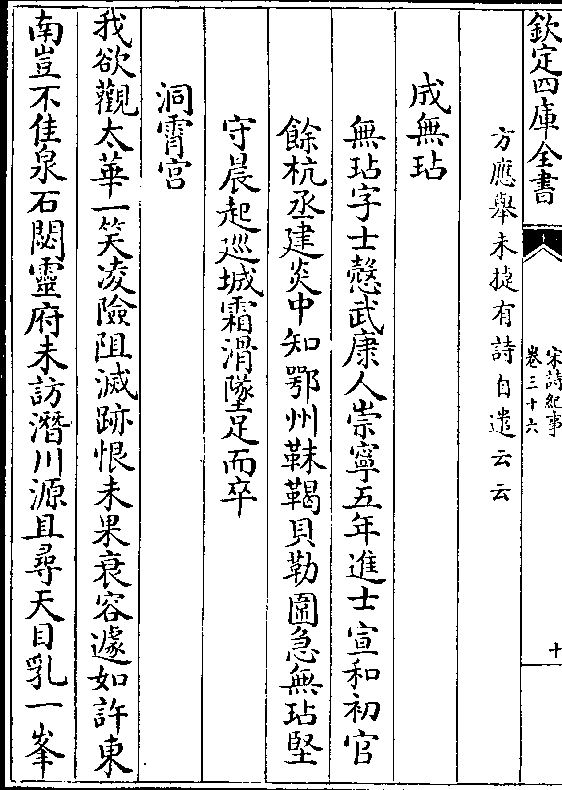 欽定四庫全書
宋詩紀事
卷三十六
十
方應舉未捷有詩自遣云云
成無玷
無玷字士慤武康人崇寧五年進士宣和初官
餘杭丞建炎中知鄂州靺鞨貝勒圍急無玷堅
守晨起巡城霜滑墜足而卒
洞霄宫
我欲觀太華一笑凌險阻滅跡恨未果衰容遽如許東
南豈不佳泉石閟靈府未訪潛川源且尋天目乳一峯